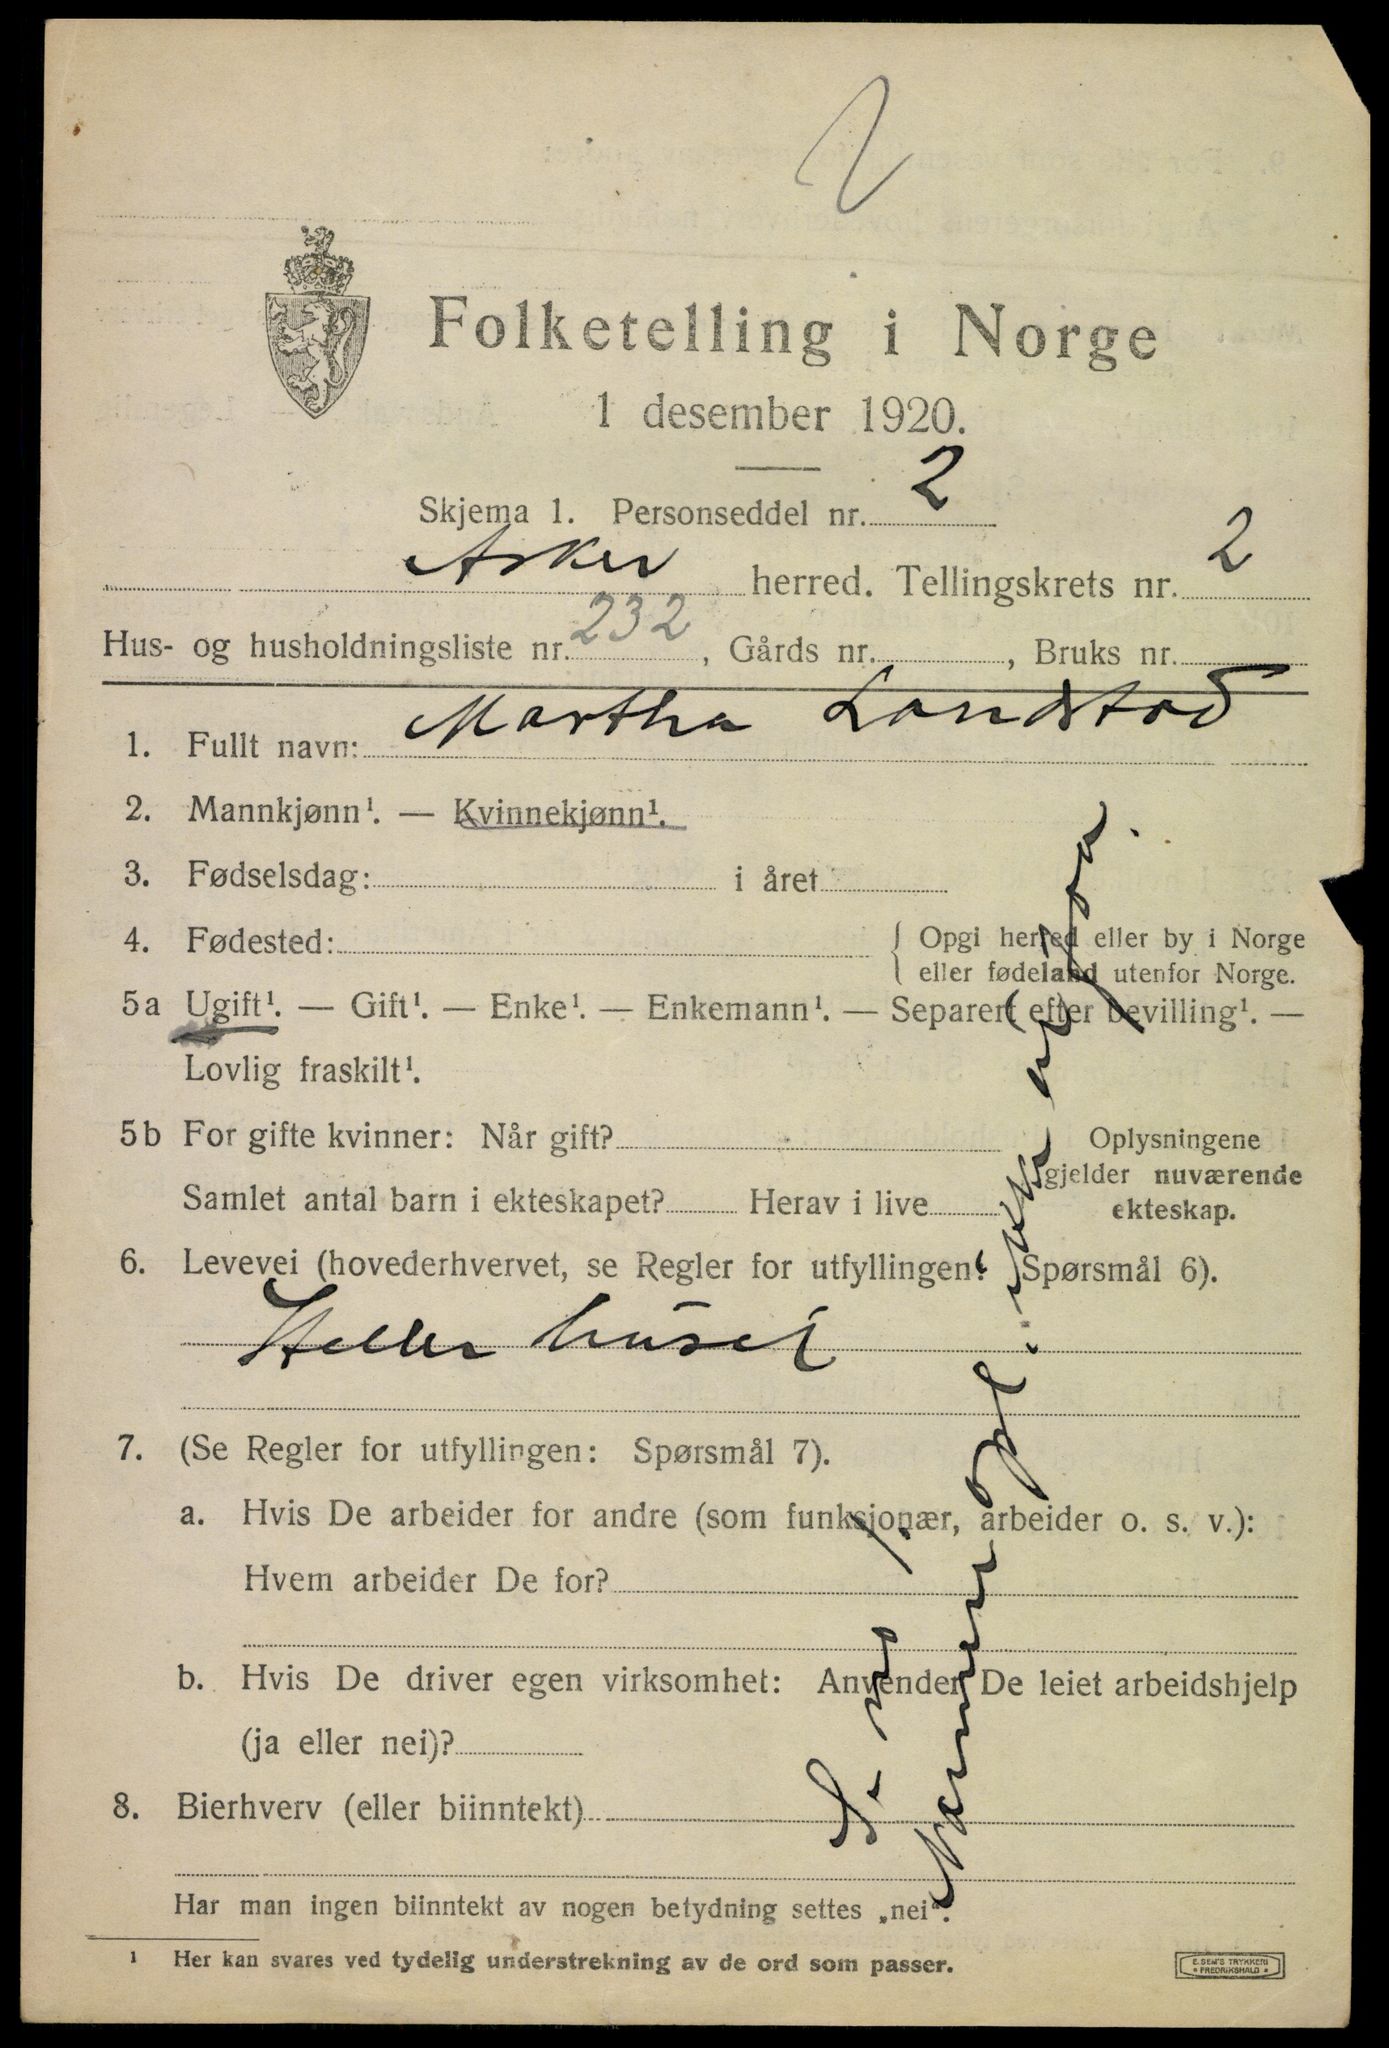 2
Folketelling i Norge
1 desember 1920.
Skjema 1. Personseddel nr. 2
Asker herred. Tellingskrets nr. 2
Hus- og husholdningsliste nr. 232, Gårds nr. , Bruks nr.
1. Fullt navn: Martha Landstad
2. Mannkjønn¹. — Kvinnekjønn¹.
3. Fødselsdag: i året
4. Fødested: { Opgi herred eller by i Norge
eller fødeland utenfor Norge.
5a Ugift¹. — Gift¹. — Enke¹. — Enkemann¹. — Separert efter bevilling¹. —
Lovlig fraskilt¹.
5b For gifte kvinner: Når gift? Oplysningene
gjelder nuværende
Samlet antal barn i ekteskapet? Herav i live ekteskap.
6. Levevei (hovederhvervet, se Regler for utfyllingen: Spørsmål 6).
Steller huset
7. (Se Regler for utfyllingen: Spørsmål 7).
a. Hvis De arbeider for andre (som funksjonær, arbeider o. s. v.):
Hvem arbeider De for?
b. Hvis De driver egen virksomhet: Anvender De leiet arbeidshjelp
(ja eller nei)?
8. Bierhverv (eller biinntekt)
Har man ingen biinntekt av nogen betydning settes „nei“.
¹ Her kan svares ved tydelig understrekning av de ord som passer.
E. SEM'S TRYKKERI
FREDRIKSHALD
Se nr 1.
Nærmere opl. ikke at få.